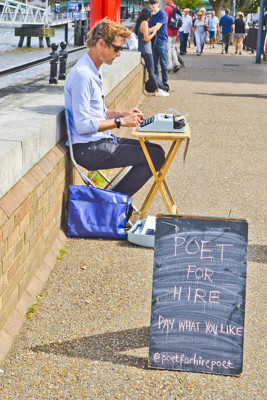 POET
FOR
HIRE
PAY WHAT YOU LIKE
@poetforhirepoet